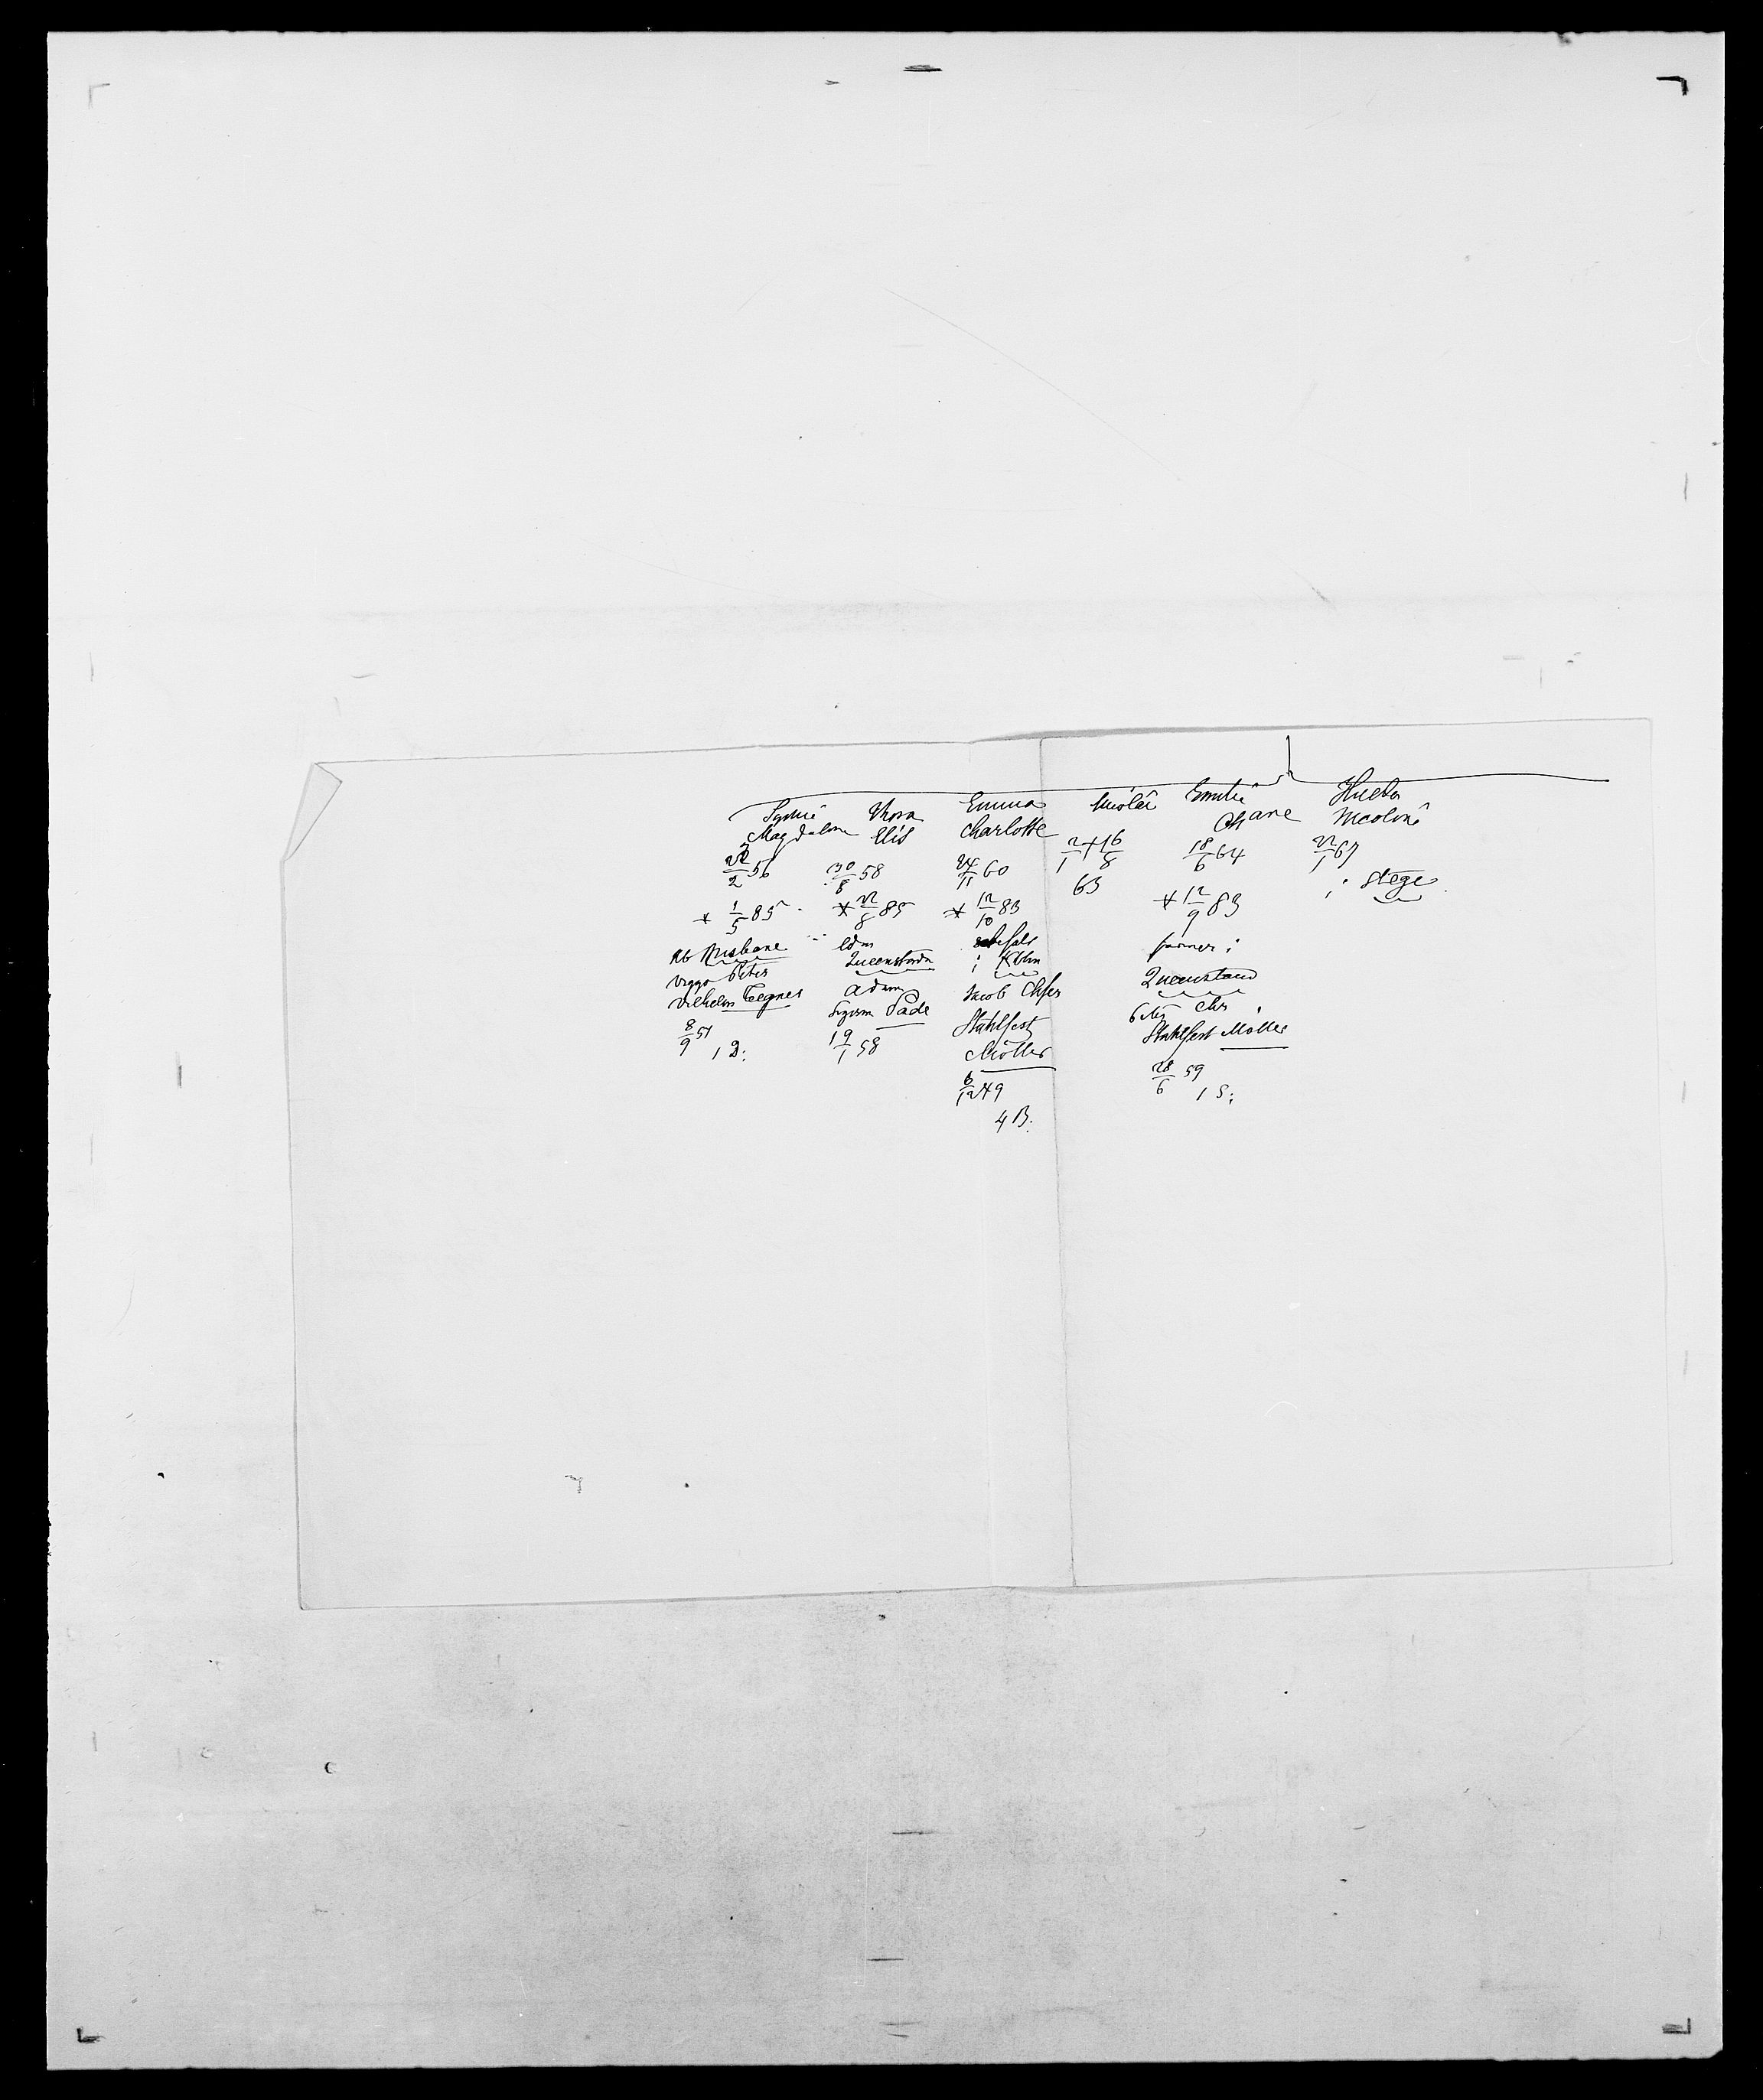 Sylvie
Magdalene
22/2 56
* 1/5 85
Rb Brisbane
Viggo Peter
Vilhelm Tegner
8/9 51
1 D:
Thora
Elis
30/8 58
* 22/8 85
ldm
Queensland
Adam
Sigism Pade
19/1 58
Emma
Charlotte
24/11 60
* 12/10 83
i Kbhn
Jacob Chr
Stahlfest
Møller
6/12 49
4 B:
Nicolai
2/1 † 16/8
63
Emilie
Chane
18/6 64
* 12/9 83
farmer i
Queensland
Peter Chr
Stahlfest Møller
28/6 59
1 S:
Hulda
Nicoline
22/1 67
i Stege